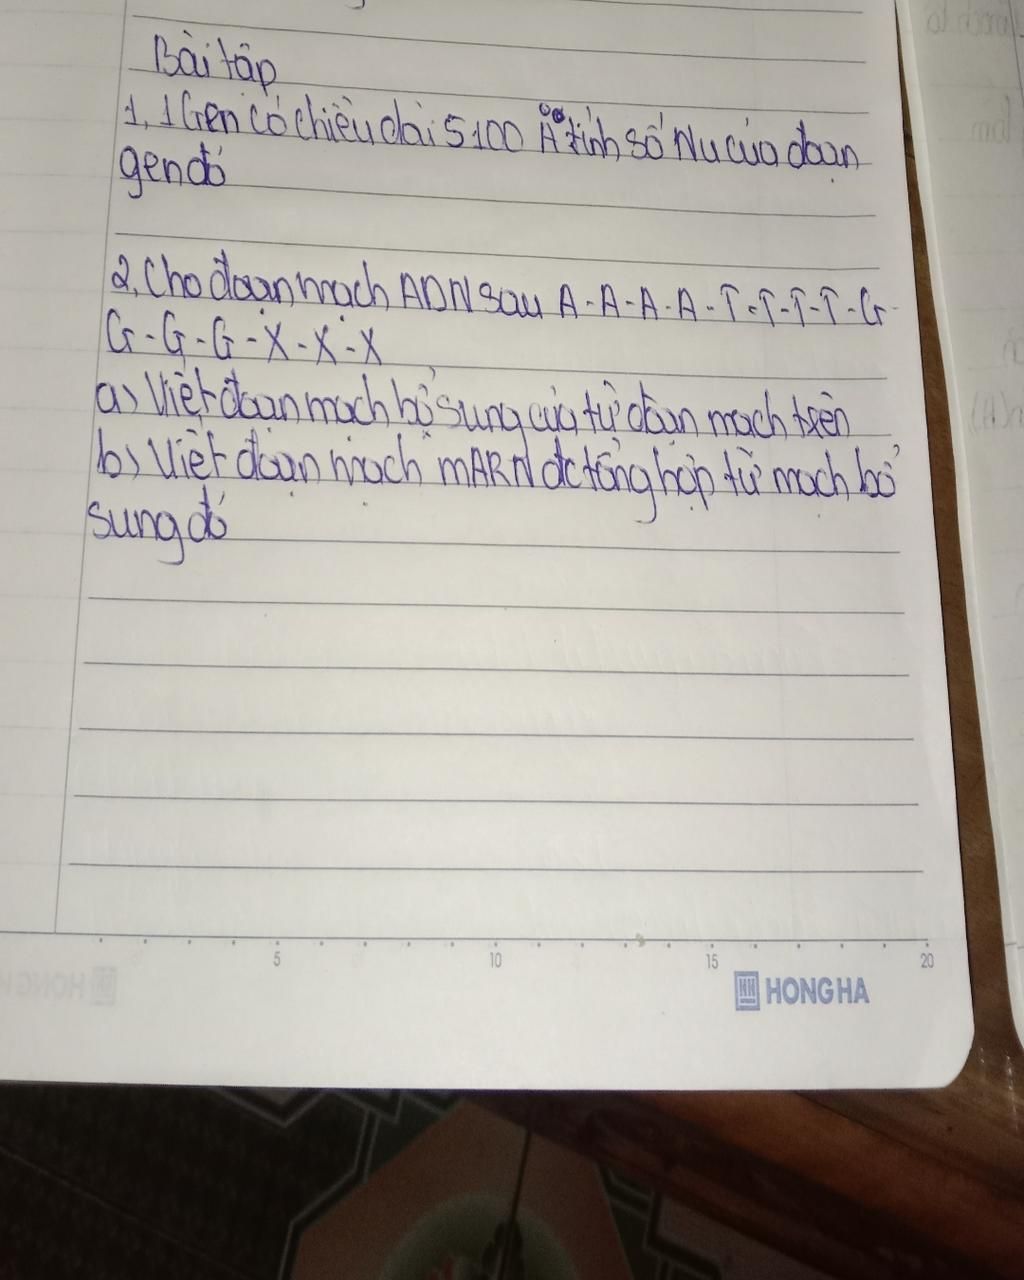 Bài tập
1, 1 Gen có chiều dài 5100 Å tính số Nu của đoạn
gen đó
2, Cho đoạn mạch ADN sau A-A-A-A-T-T-T-T-G-
G-G-G-X-X-X
a) Viết đoạn mạch bổ sung của từ đoạn mạch trên
b) Viết đoạn mạch mARN đc tổng hợp từ mạch bổ
sung đó
5 10 15 20
HONG HA